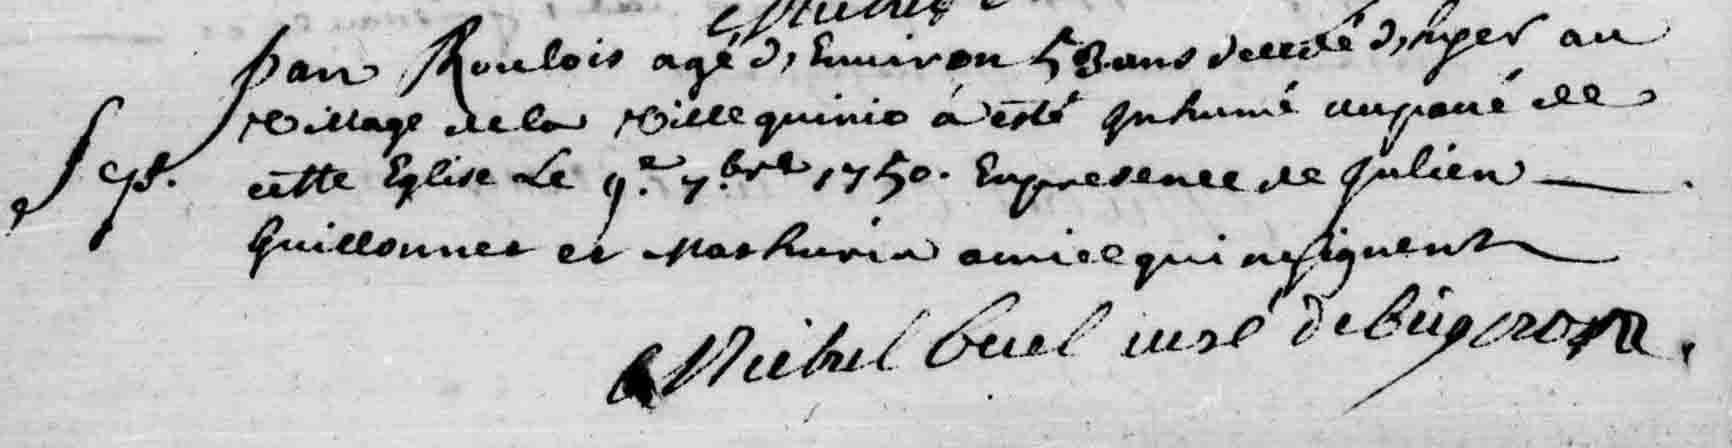 jan Roulois agé d'Environ 58 ans decedé d'hyer au
village de la villequinio a esté Inhumé au pavé de
Sept. cette Eglise Le 9.e 7.bre 1750. En presence de Julien
Guillonnet et Mathurin amice qui ne signent
Michel curé de